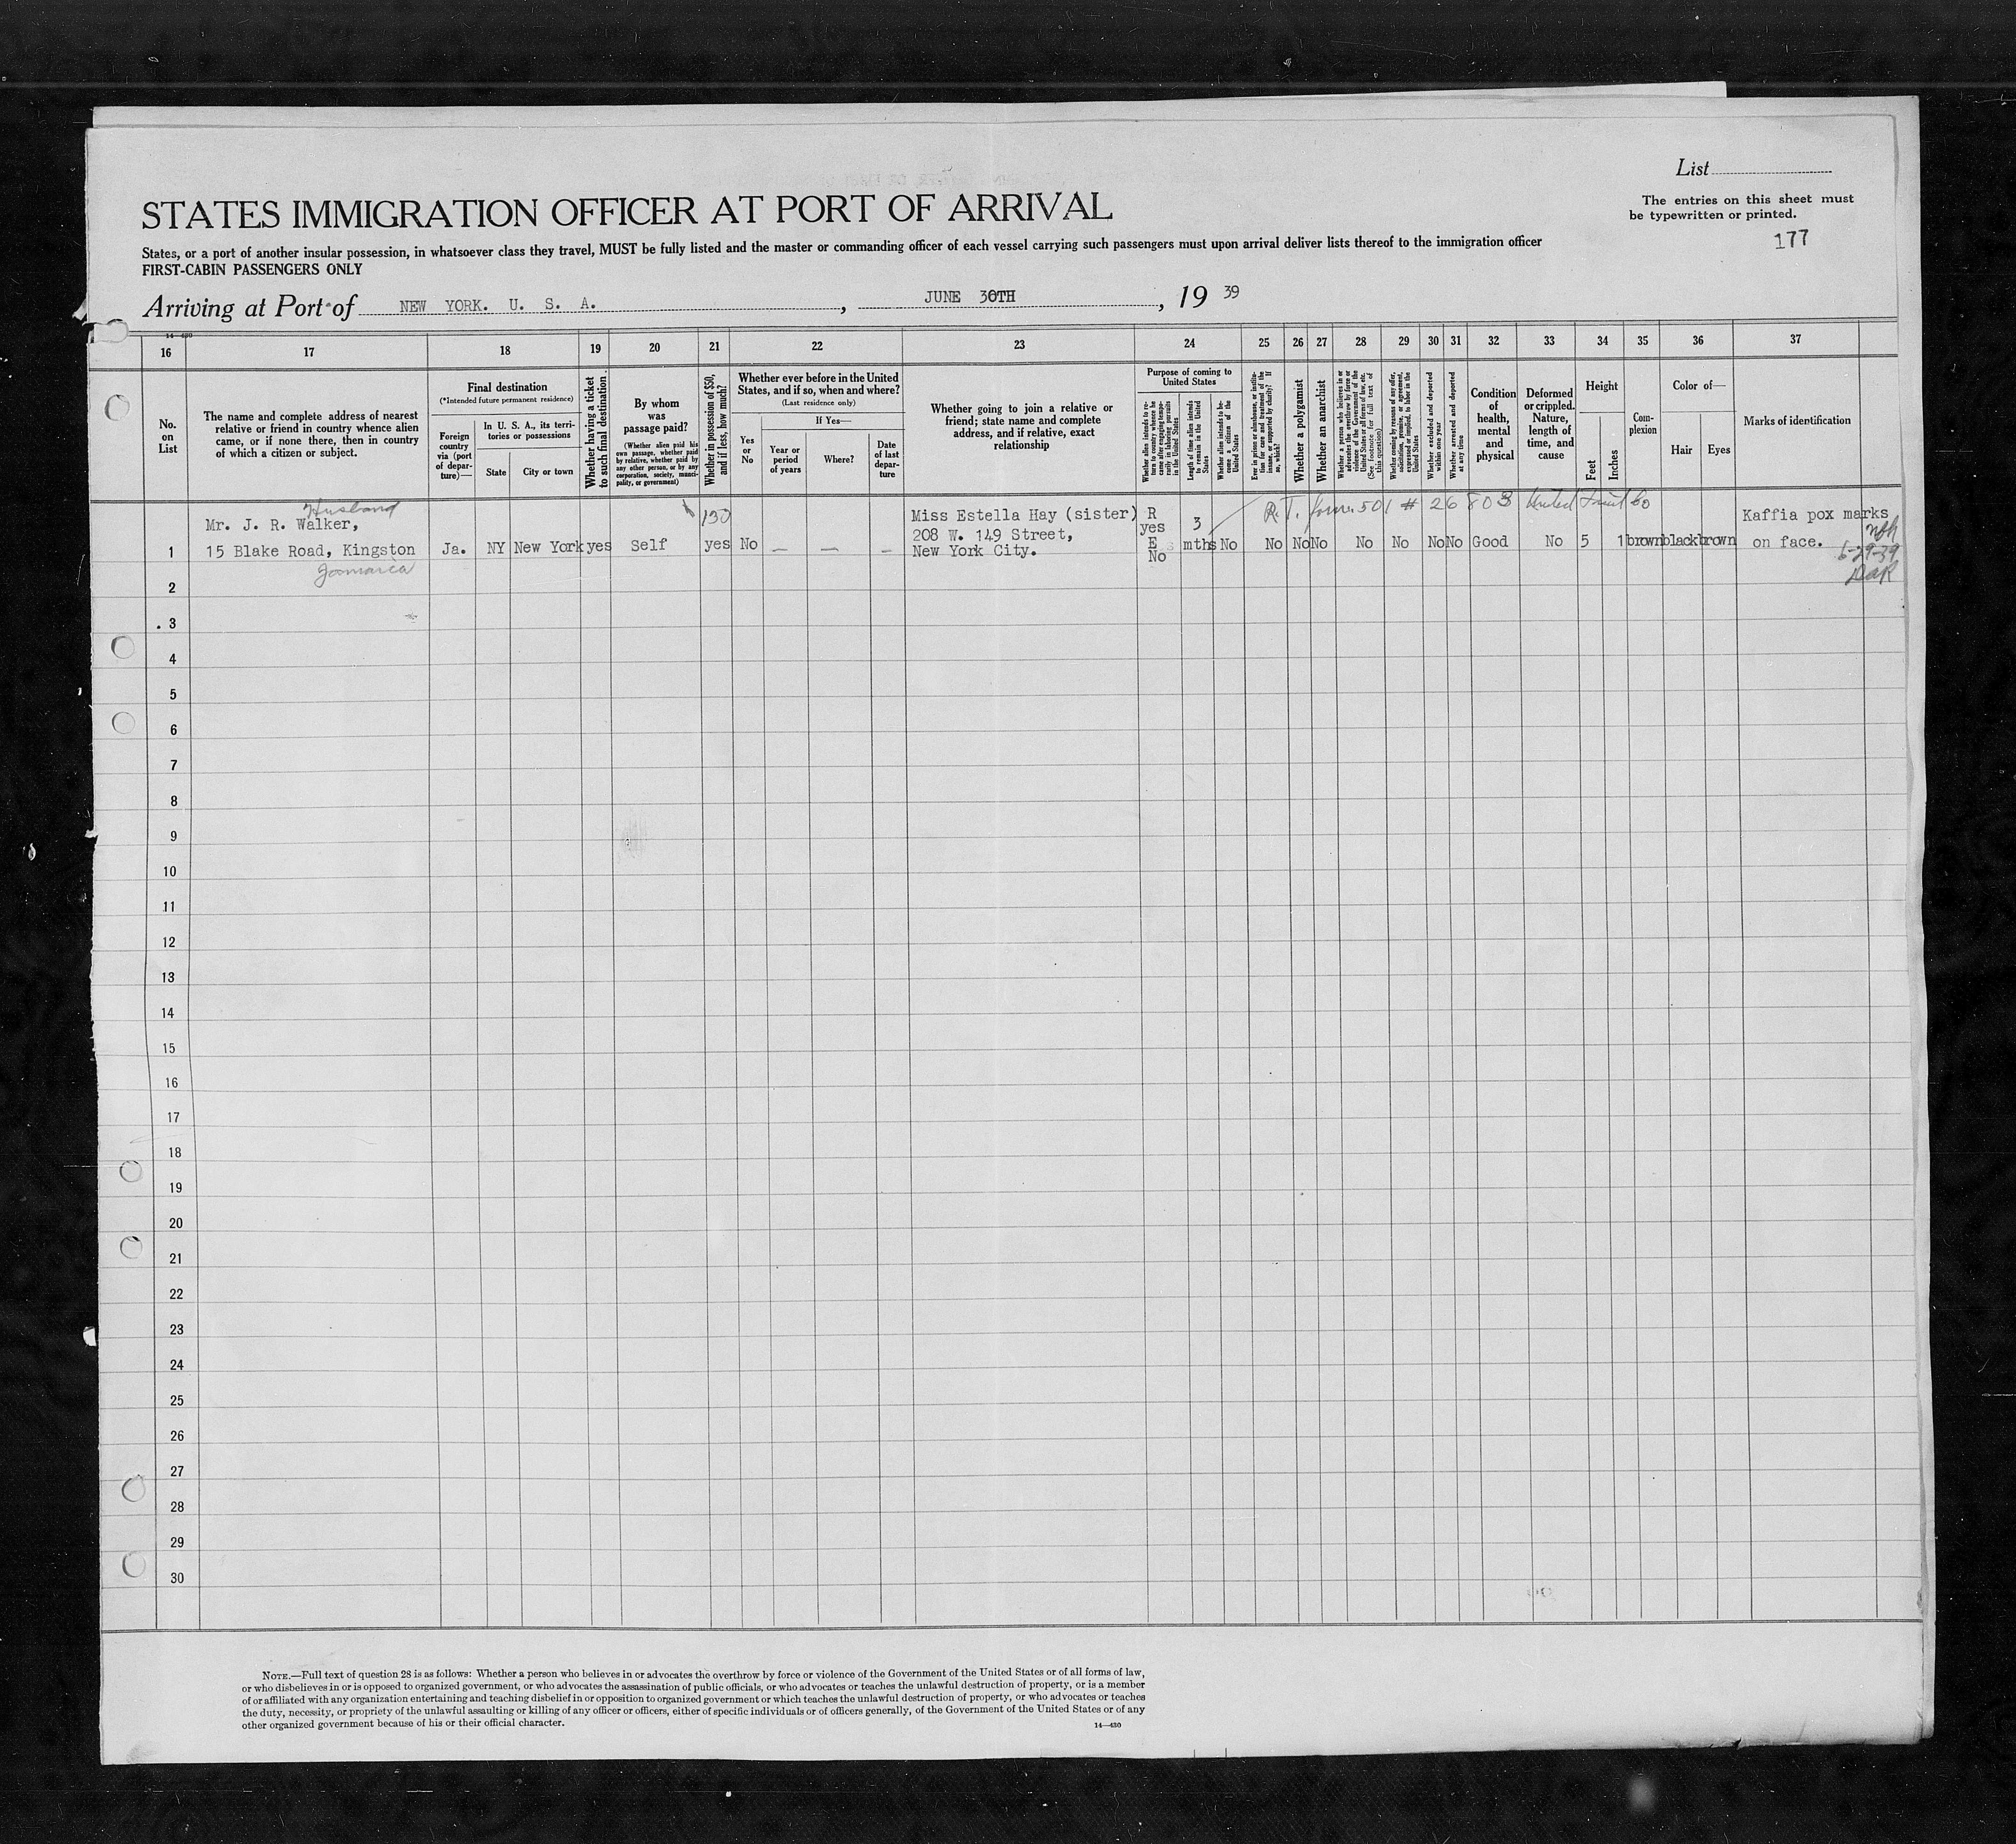 List
The entries on this sheet must
be typewritten or printed.
177
STATES IMMIGRATION OFFICER AT PORT OF ARRIVAL
States, or a port of another insular possession, in whatsoever class they travel, MUST be fully listed and the master or commanding officer of each vessel carrying such passengers must upon arrival deliver lists thereof to the immigration officer
FIRST-CABIN PASSENGERS ONLY
Arriving at Port of NEW YORK. U. S. A. , JUNE 30TH , 19 39
14—430
16 17 18 19 20 21 22 23 24 25 26 27 28 29 30 31 32 33 34 35 36 37
No.
on
List
The name and complete address of nearest
relative or friend in country whence alien
came, or if none there, then in country
of which a citizen or subject.
Final destination
(*Intended future permanent residence)
Foreign
country
via (port
of depar-
ture)—
In U. S. A., its terri-
tories or possessions
State
City or town
Whether having a ticket
to such final destination
By whom
was
passage paid?
(Whether alien paid his
own passage, whether paid
by relative, whether paid by
any other person, or by any
corporation, society, munici-
pality, or government)
Whether in possession of $50,
and if less, how much?
Whether ever before in the United
States, and if so, when and where?
(Last residence only)
Yes
or
No
If Yes—
Year or
period
of years
Where?
Date
of last
depar-
ture
Whether going to join a relative or
friend; state name and complete
address, and if relative, exact
relationship
Purpose of coming to
United States
Whether alien intends to re-
turn to country whence he
came after engaging tempo-
rarily in laboring pursuits
in the United States
Length of time alien intends
to remain in the United
States
Whether alien intends to be-
come a citizen of the
United States
Ever in prison or almshouse, or institu-
tion for care and treatment of the
insane, or supported by charity? If
so, which?
Whether a polygamist
Whether an anarchist
Whether a person who believes in or
advocates the overthrow by force or
violence of the Government of the
United States or all forms of law, etc.
(See footnote for full text of
this question)
Whether coming by reasons of any offer,
solicitation, promise, or agreement,
expressed or implied, to labor in the
United States
Whether excluded and deported
within one year
Whether arrested and deported
at any time
Condition
of
health,
mental
and
physical
Deformed
or crippled.
Nature,
length of
time, and
cause
Height
Feet
Inches
Com-
plexion
Color of—
Hair
Eyes
Marks of identification
Husband
Mr. J. R. Walker,
15 Blake Road, Kingston
Jamaica
1 Ja. NY New York yes Self
130
yes No — — —
Miss Estella Hay (sister)
208 W. 149 Street,
New York City.
R
yes
E
No
3
mths No
R.T. form 501 # 26803 United Fruit Co
No No No No No No No Good No 5 1 brown black brown
Kaffia pox marks
on face.
6-29-39
2
3
4
5
6
7
8
9
10
11
12
13
14
15
16
17
18
19
20
21
22
23
24
25
26
27
28
29
30
NOTE.—Full text of question 28 is as follows: Whether a person who believes in or advocates the overthrow by force or violence of the Government of the United States or of all forms of law,
or who disbelieves in or is opposed to organized government, or who advocates the assassination of public officials, or who advocates or teaches the unlawful destruction of property, or is a member
of or affiliated with any organization entertaining and teaching disbelief in or opposition to organized government or which teaches the unlawful destruction of property, or who advocates or teaches
the duty, necessity, or propriety of the unlawful assaulting or killing of any officer or officers, either of specific individuals or of officers generally, of the Government of the United States or of any
other organized government because of his or their official character.
14—430